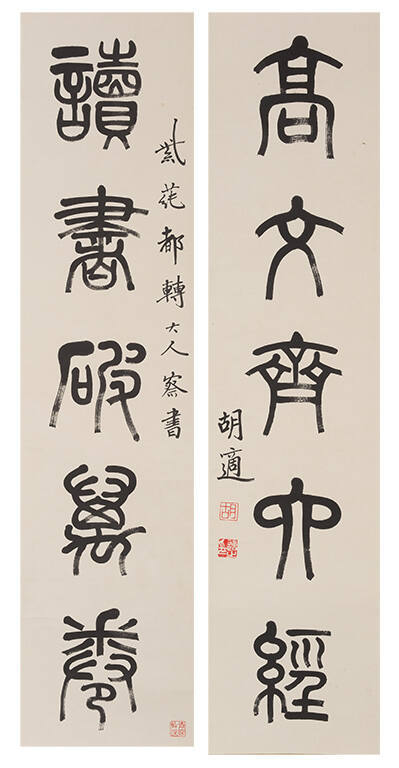 高文齊六經
胡適
胡
紫花都轉大人察書
讀書破萬卷